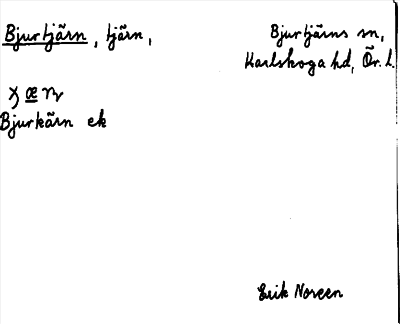 Bjurtjärn, tjärn,
Bjurtjärns sn,
Karlskoga hd, Ör. l.
Bjurkärn ek
Erik Noreen